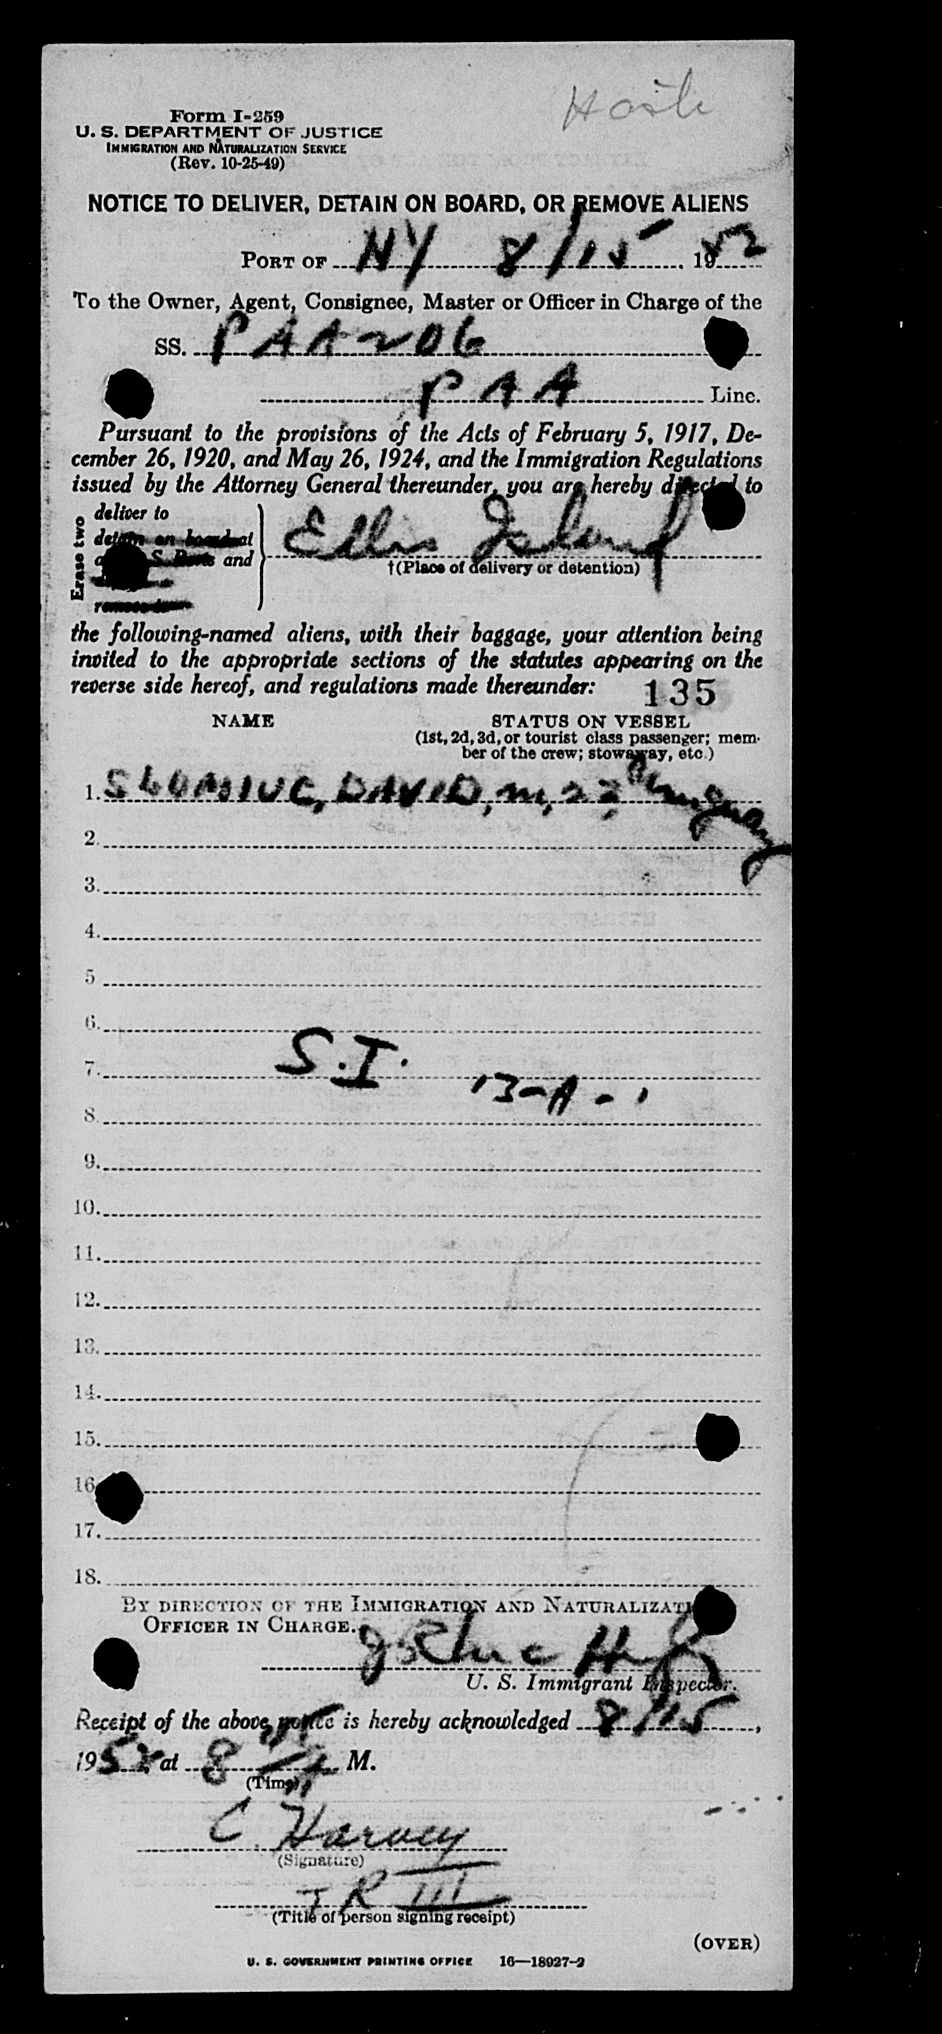 Hosik
Form I-259
U. S. DEPARTMENT OF JUSTICE
IMMIGRATION AND NATURALIZATION SERVICE
(Rev. 10-25-49)
NOTICE TO DELIVER, DETAIN ON BOARD, OR REMOVE ALIENS
PORT OF NY 8/15, 1952
To the Owner, Agent, Consignee, Master or Officer in Charge of the
SS. PAA 206
PAA Line.
Pursuant to the provisions of the Acts of February 5, 1917, De-
cember 26, 1920, and May 26, 1924, and the Immigration Regulations
issued by the Attorney General thereunder, you are hereby directed to
Erase two
deliver to
detain on board at
and
remove
Ellis Island
†(Place of delivery or detention)
the following-named aliens, with their baggage, your attention being
invited to the appropriate sections of the statutes appearing on the
reverse side hereof, and regulations made thereunder: 135
NAME STATUS ON VESSEL
(1st, 2d, 3d, or tourist class passenger; mem-
ber of the crew; stowaway, etc.)
1. SLOMIUC, DAVID, m, 22, Uruguay
2.
3.
4.
5
6.
7. S.I. 13-A-1
8.
9.
10.
11.
12.
13.
14.
15.
16
17.
18.
BY DIRECTION OF THE IMMIGRATION AND NATURALIZATI
OFFICER IN CHARGE.
U. S. Immigrant Inspector.
Receipt of the above notice is hereby acknowledged 8/15,
1952 at 8 M.
(Time)
C. Harvey
(Signature)
TR III
(Title of person signing receipt)
(OVER)
U. S. GOVERNMENT PRINTING OFFICE 16—18927-2